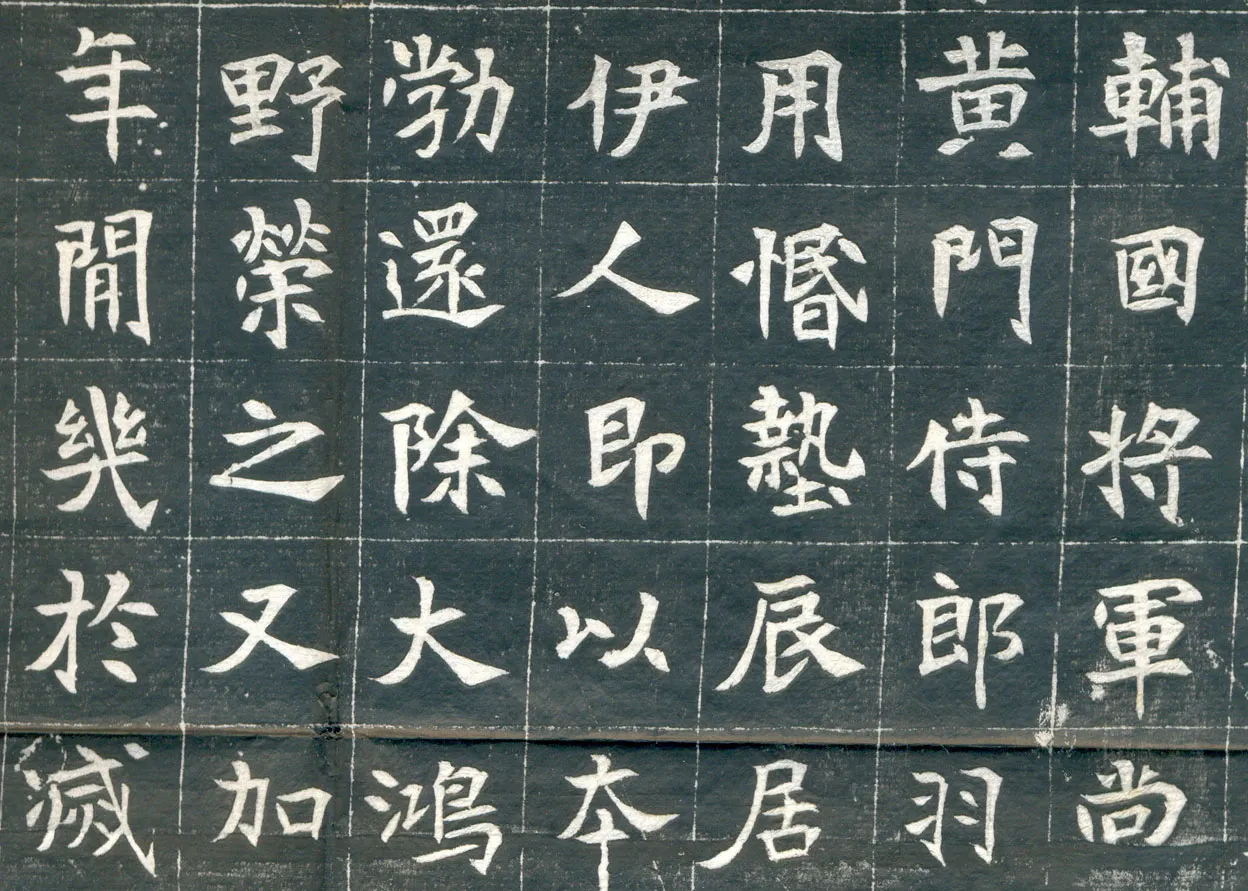 輔國將軍尚
黃門侍郎羽
用惛墊辰居
伊人即以本
勃還除大鴻
野榮之又加
年閒幾於滅